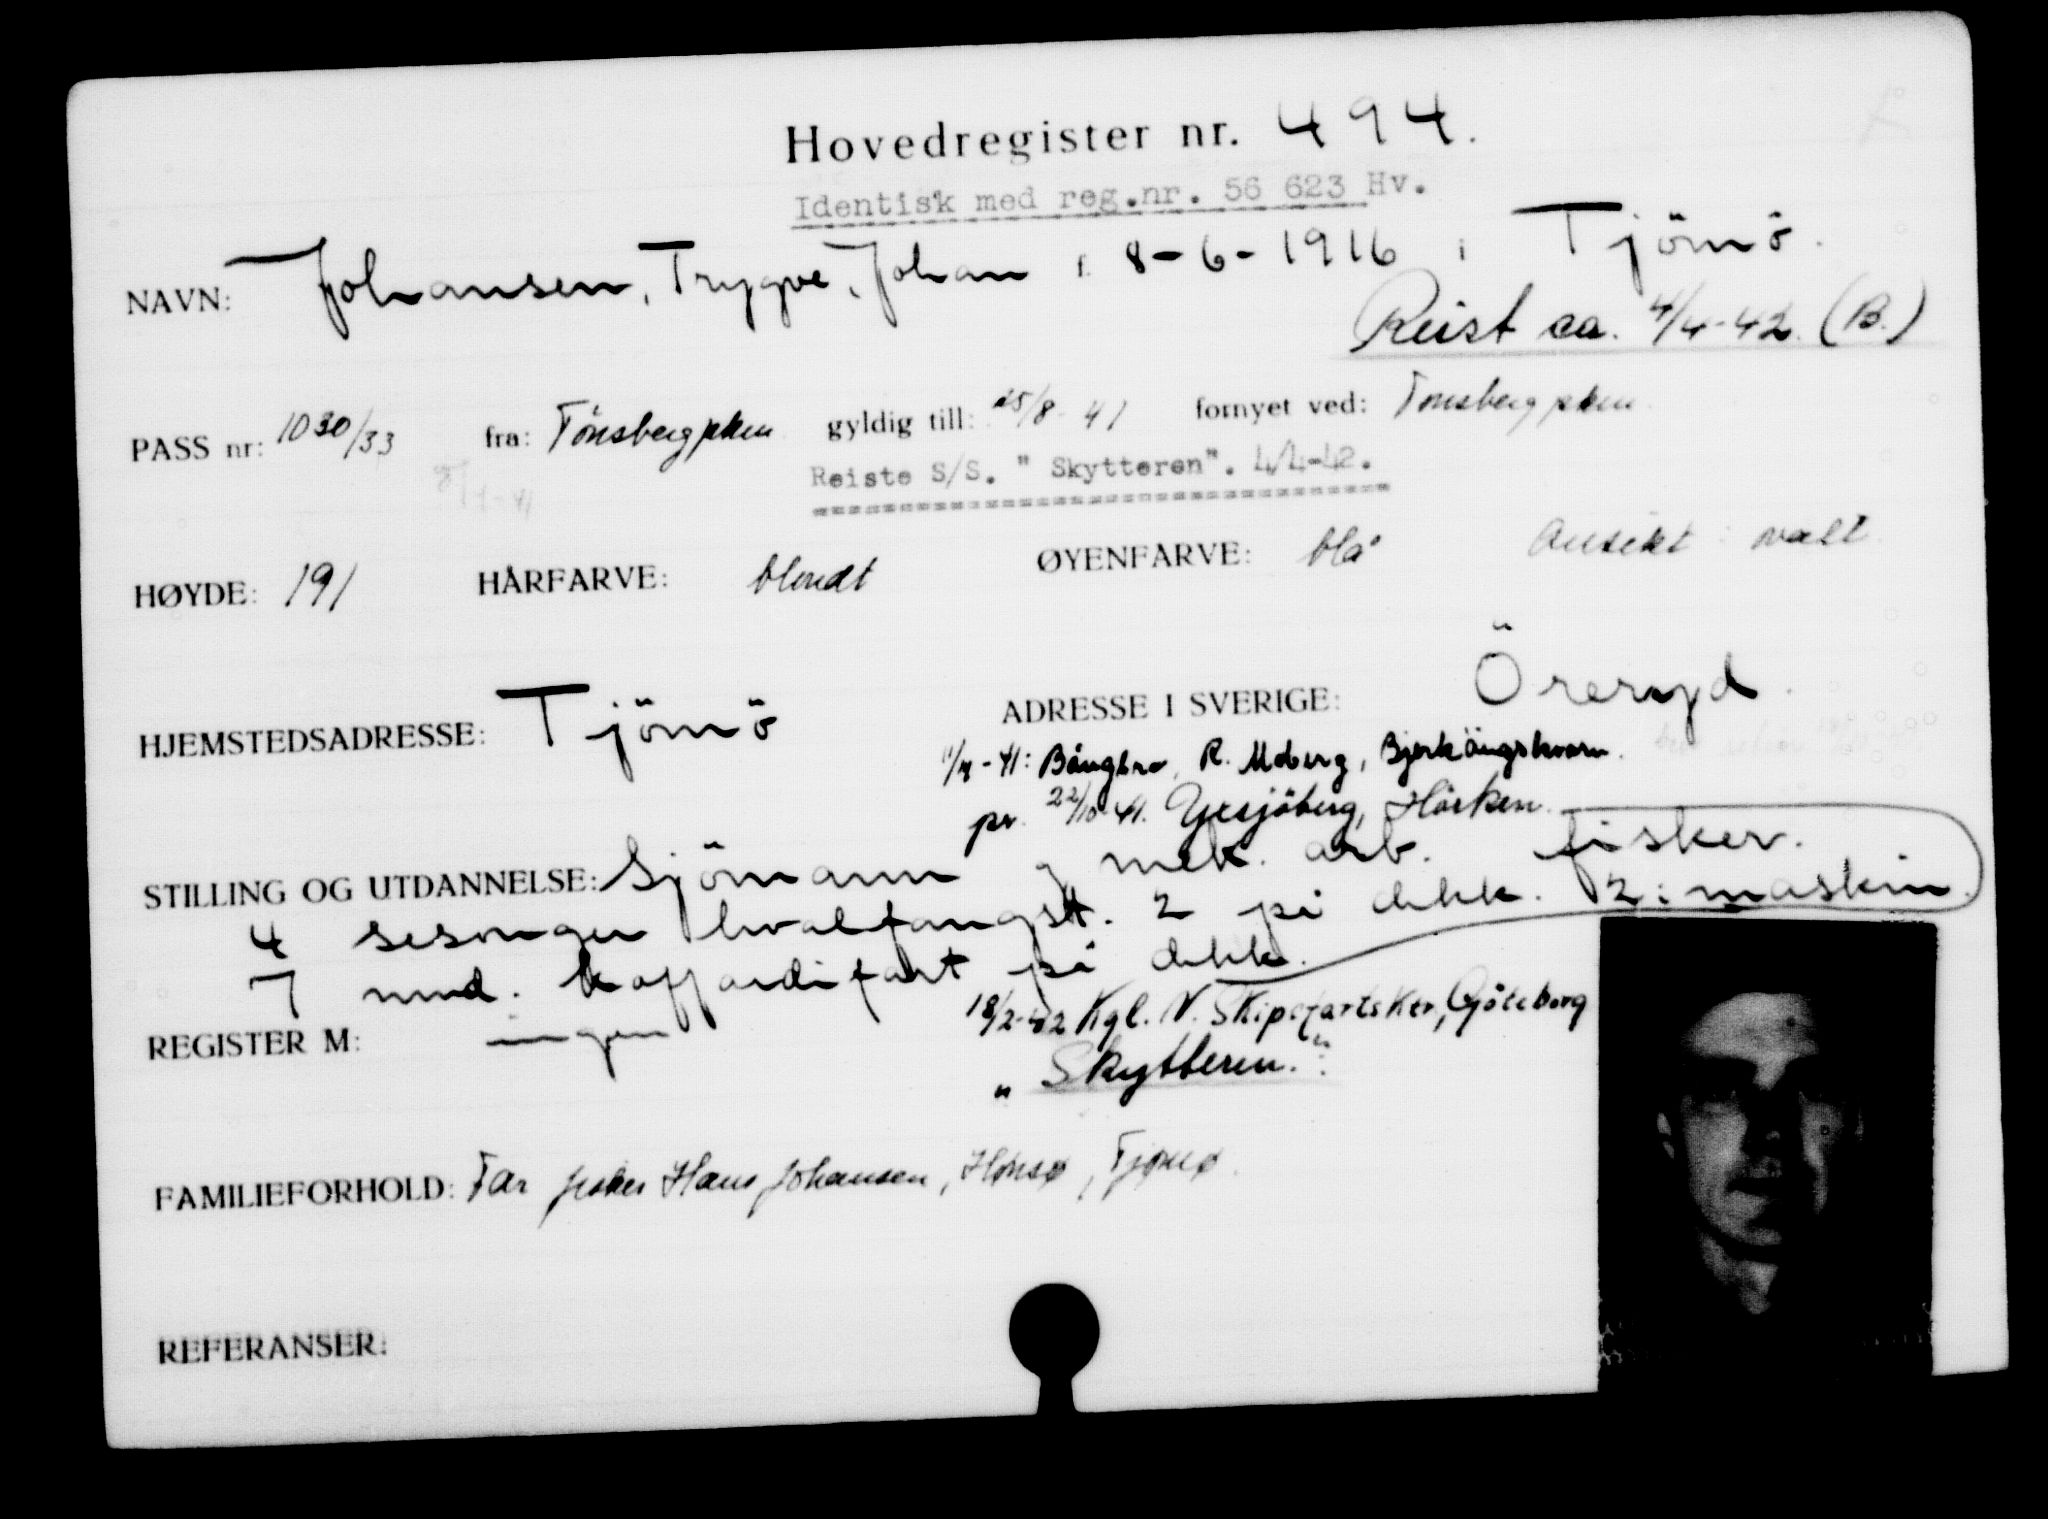 Hovedregister nr. 494.
Identisk med reg.nr. 56 623 Hv.
NAVN: Johansen, Trygve, Johan f. 8-6-1916 i Tjömö.
Reist ca. 4/4-42. (B.)
PASS nr: 1030/33 fra: Tönsberg pkm gyldig till: 25/8-41 fornyet ved: Tönsberg pkm
Reiste S/S. " Skytteren". 4/4-42.
HØYDE: 191 HÅRFARVE: blondt ØYENFARVE: blå Ansikt: ovalt
HJEMSTEDSADRESSE: Tjömö ADRESSE I SVERIGE: Öreryd.
11/7-41: Bångbro, R. Moberg, Bjerkängskvarn.
pr. 22/10-41. Gesjöberg, Hörken.
STILLING OG UTDANNELSE: Sjömann og mek. arb. fisker.
4 sesonger hvalfangst. 2 på dekk. 2 i maskin.
7 mnd. koffardifart på dekk.
18/2-42 Kgl. N. Skipsfartsktr, Göteborg
REGISTER M: ingen
"Skytteren."
FAMILIEFORHOLD: Far fisker Hans Johansen, Hønsø, Tjømø.
REFERANSER: